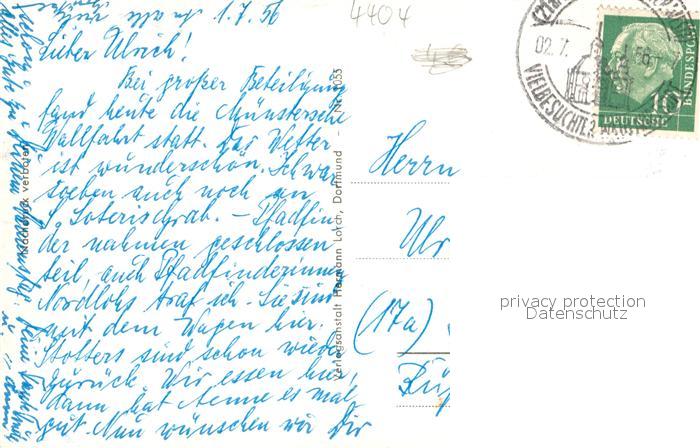 1.7.56
4404
Lieber Ulrich!
Bei großer Beteiligung
fand heute die Münstersche
Wallfahrt statt. Das Wetter
ist wunderschön. Ich war
soeben auch noch am
Grab. – Pfadfin-
der nahmen geschlossen
teil, auch Pfadfinderinnen
Nordlohs traf ich. Sie sind
mit dem Wagen hier.
Stolters sind schon wieder
zurück. Wir essen hier,
dann hat Aenne es mal
gut. Nun wünschen wir Dir
alles Gute zu Deinem
Nachdruck verboten
Verlagsanstalt Hermann Lorch, Dortmund
Herrn
Ulr
(17a)
02.7. 56
VIELBESUCHTER
10
DEUTSCHE
BUNDESPOST
privacy protection
Datenschutz